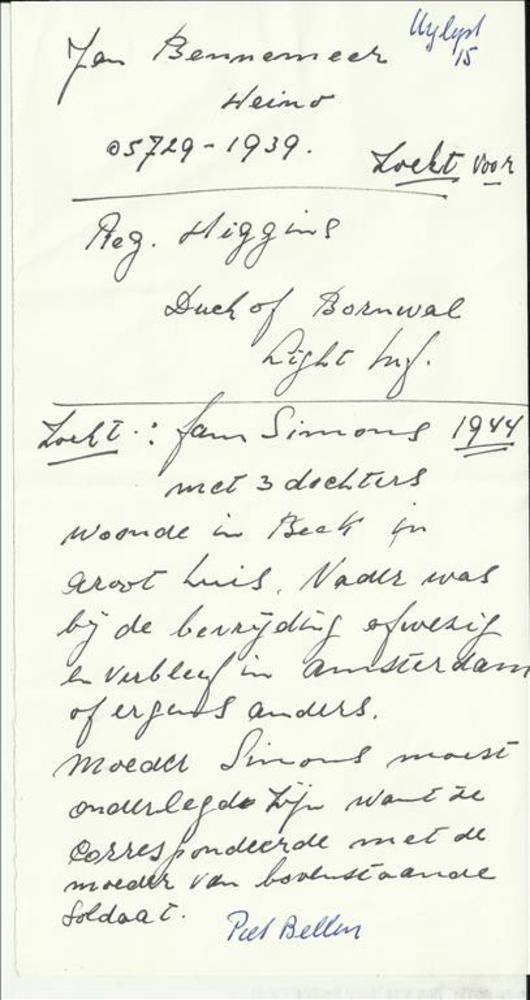 15
Jan Bennemeer
Heino
05729-1939.
Zoekt voor
Reg. Higgins
Duck of Bornwal
Light Inf.
Zoekt.: fam Simons 1944
met 3 dochters
woonde in Beek in
groot huis. Vader was
bij de bevrijding afwezig
en verbleef in amsterdam
of ergens anders.
Moeder Simons moest
onderlegd zijn want ze
correspondeerde met de
moeder van bovenstaande
Soldaat.
Piet Bellen